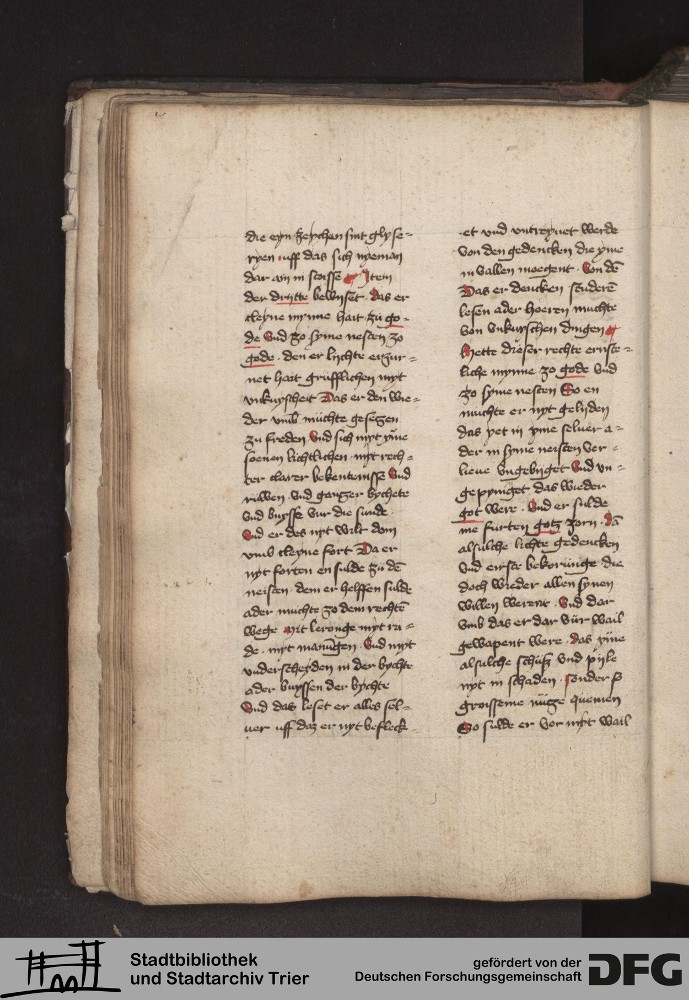 die eyn zeychen sint gly se=
ryen uff das sich nyeman
dar an in stoisse Item
der dritte bewyset. Das er
cleyne mynne hait zu go-
de Und zo syme nesten zo
gode. den er lychte erzur=
net hait gruflichen myt
unkuyscheit Das er den wie=
der umb muchte gesetzen
zu freden Und sich myt yme
soenen lichtlichen. myt rech=
ter clarer bekentenisse Und
ruwen. Und gantzer bychete
Und buysse vur die sunde
Und er des nyt wilt don
umb cleyne fort Da er
nyt forten en sulde zu dē
neisten. dem er helffen sulde
ader muchte zo dem rechtē
wege. mit leronge myt ra=
de. myt manūgen. Und myt
underscheyden in der bychte
ader buyssen der bychte
Und das leset er alles sel-
ver uff daz er nyt befleck-
et und untreynet werde
Von den gedencken die yme
in vallen moegent. Von dē
Das er dencken studerē
lesen ader hoeren muchte
Von unkuyschen dingen
Hette dieser rechte ernste=
liche mynne zo gode Und
zo syme nesten So en
muchte er nyt gelyden
das yet in yme selver a-
der in syme neisten ver=
lieve Ungebuyget Und un=
gepyniget das wieder
got were. Und er sulde
me furten gotz zorn. dā
alsulche lichte gedencken
Und eirste bekorunge die
doch wieder allen synen
willen werent. Und dar
umb das er dar vur wail
gewapent were. das yme
alsulche schutz Und pyle
nyt in schaden. sonder zo
groisseme nutze quemen
So sulde er vor nyt wail
Stadtbibliothek
und Stadtarchiv Trier
gefördert von der
Deutschen Forschungsgemeinschaft
DFG